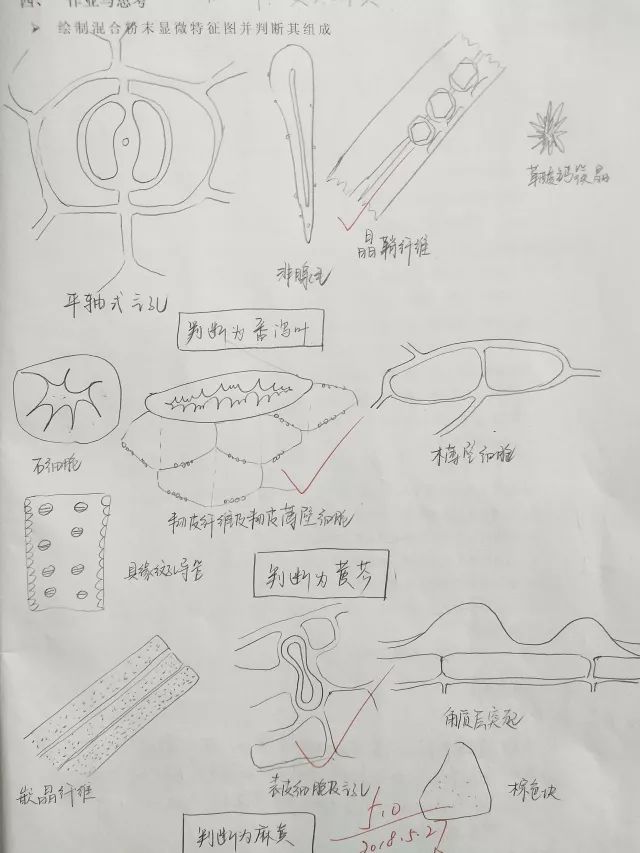 四、 作业与思考
➢ 绘制混合粉末显微特征图并判断其组成
草酸钙簇晶
晶鞘纤维
非腺毛
平轴式气孔
判断为番泻叶
石细胞
木薄壁细胞
韧皮纤维及韧皮薄壁细胞
具缘纹孔导管
判断为黄芩
角质层突起
嵌晶纤维
表皮细胞及气孔
棕色块
判断为麻黄
5.0
2018.5.27